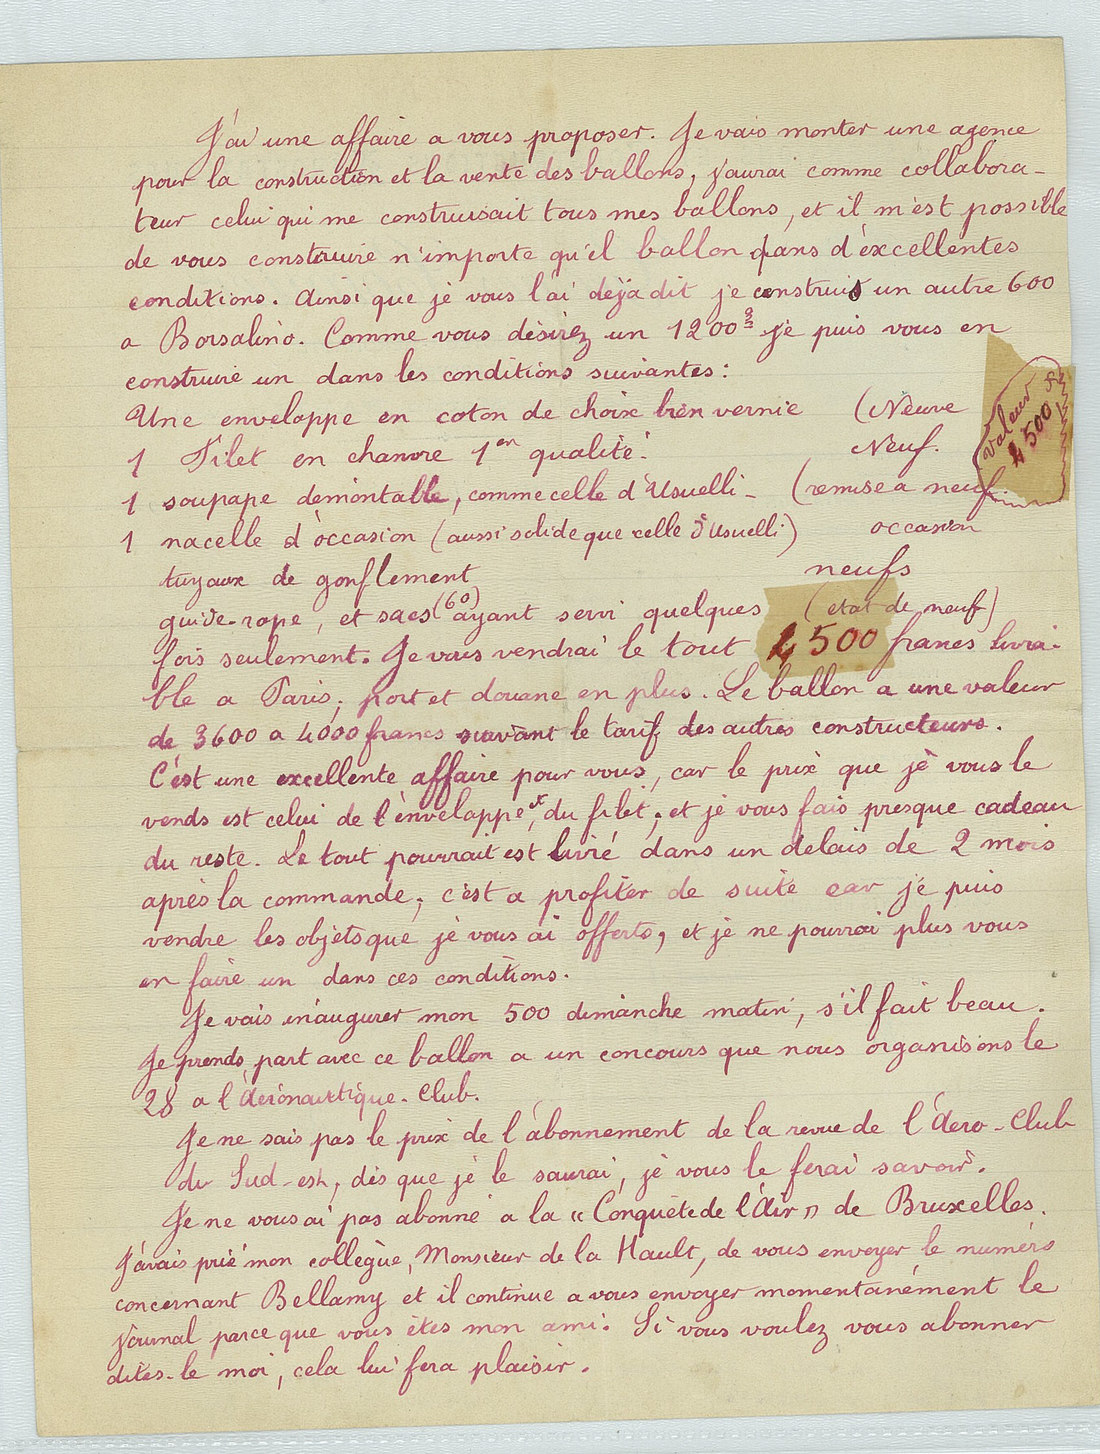 J'ai une affaire a vous proposer. Je vais monter une agence
pour la construction et la vente des ballons, j'aurai comme collabora-
teur celui qui me construisait tous mes ballons, et il m'est possible
de vous construire n'importe qu'el ballon dans d'excellentes
conditions. Ainsi que je vous l'ai déja dit je construis un autre 600
a Borsalino. Comme vous désirez un 1200 3 je puis vous en
construire un dans les conditions suivantes :
Une enveloppe en coton de choix bien vernie (Neuve
1 Filet en chanvre 1er qualité. Neuf.
valeur 4500 f
1 soupape démontable, comme celle d'Usuelli - (remise a neuf
1 nacelle d'occasion (aussi solide que celle d'Usuelli) occasion
tuyaux de gonflement neufs
guide-rope, et sacs (60) ayant servi quelques (etat de neuf)
fois seulement. Je vous vendrai le tout 4500 francs livra-
ble a Paris, port et douane en plus. Le ballon a une valeur
de 3600 a 4000 francs suivant le tarif des autres constructeurs.
C'est une excellente affaire pour vous, car le prix que je vous le
vends est celui de l'enveloppe et du filet, et je vous fais presque cadeau
du reste. Le tout pourrait est livré dans un delais de 2 mois
après la commande, c'est a profiter de suite car je puis
vendre les objets que je vous ai offerts, et je ne pourrai plus vous
en faire un dans ces conditions.
Je vais inaugurer mon 500 dimanche matin, s'il fait beau.
Je prends part avec ce ballon a un concours que nous organisons le
28 a l'Aéronautique-Club.
Je ne sais pas le prix de l'abonnement de la revue de l'Aero-Club
du Sud-est, dès que je le saurai, je vous le ferai savoir.
Je ne vous ai pas abonné a la « Conquête de l'Air » de Bruxelles.
J'avais prié mon collègue, Monsieur de la Hault, de vous envoyer le numéro
concernant Bellamy et il continue a vous envoyer momentanément le
journal parce que vous êtes mon ami. Si vous voulez vous abonner
dites-le moi, cela lui fera plaisir.